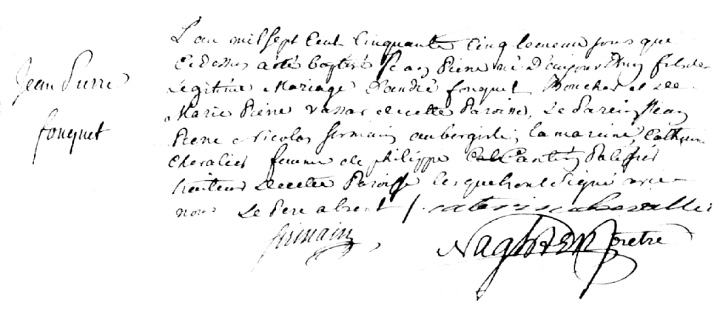 Jean Pierre
fonquet
L'an mil sept Cent Cinquante Cinq le meme jour que
Cidessus a été baptisé Jean Pierre né d'aujourd'huy fils de
Legitime Mariage D'andré fonquet Boucher et de
Marie Pierre vassar de cette Paroisse, Le Parein Jean
Pierre Nicolas Germain aubergiste, la mareine, Catherine
Chevalier femme de philippe
de cette Paroisse lesquels ont signé avec
nous Le Pere absent / caterinne chevallier
Germain
Pretre